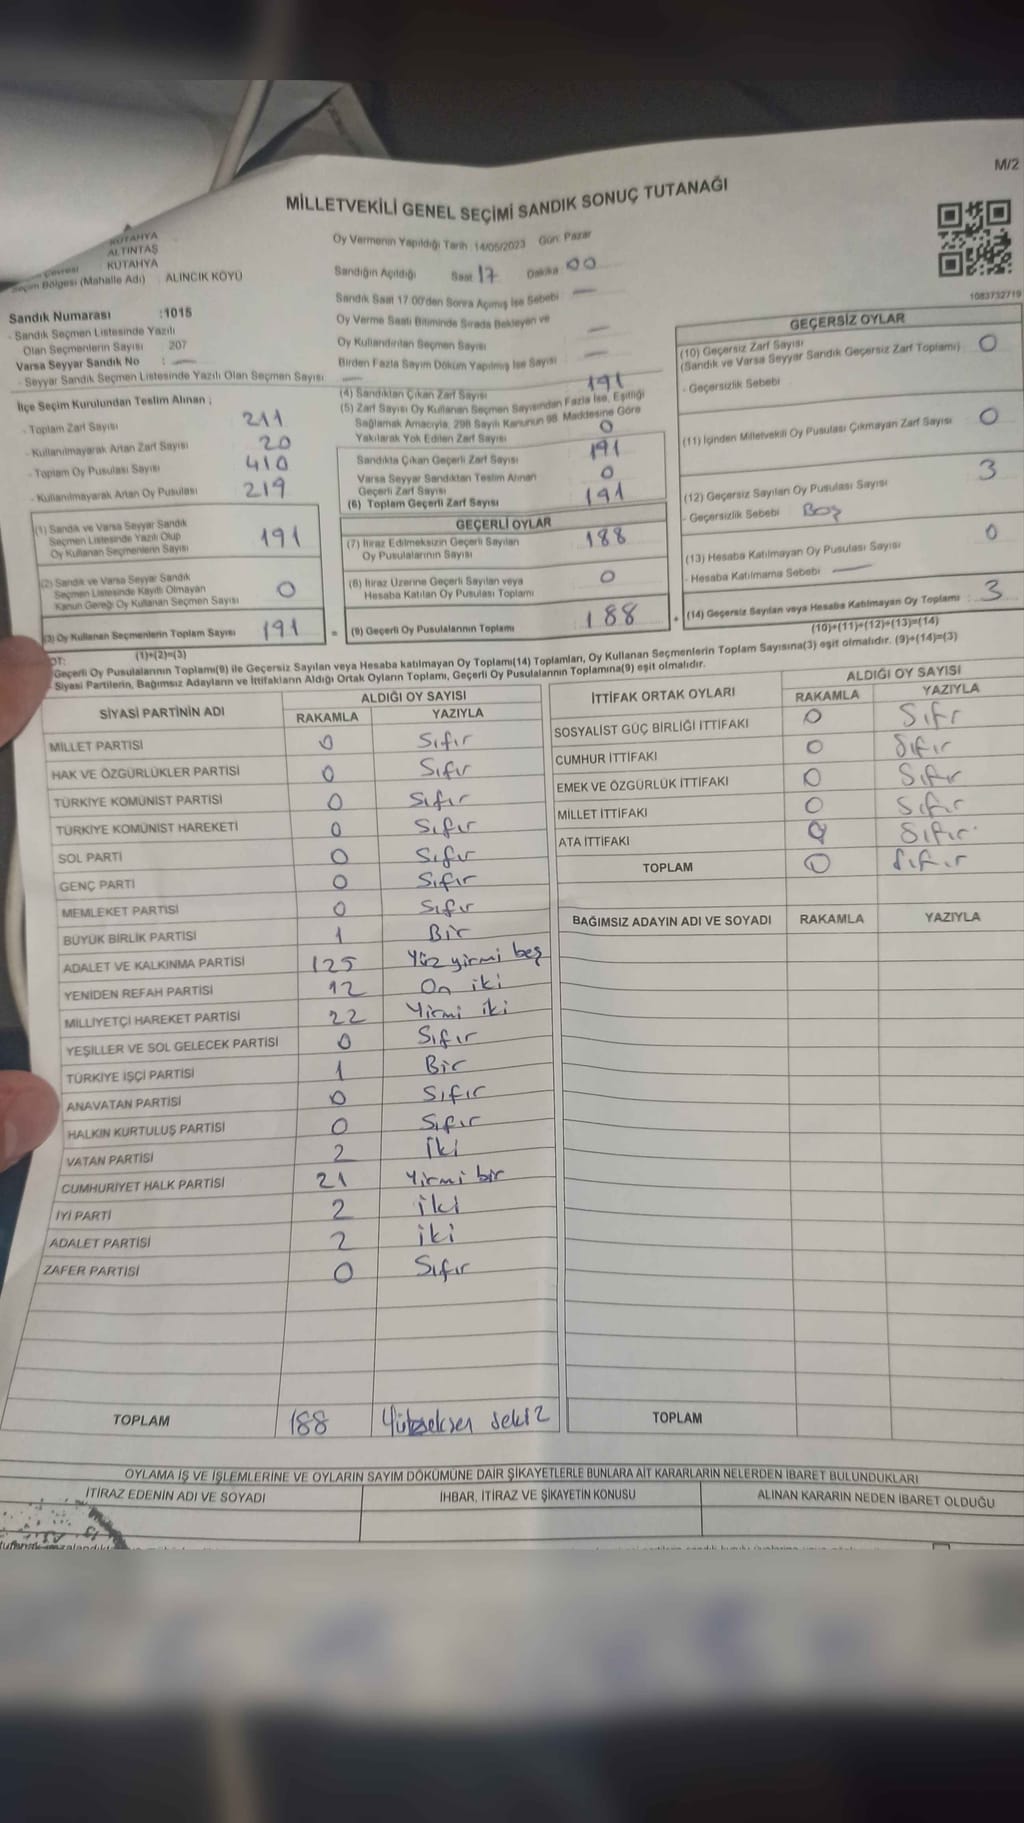 M/2
MİLLETVEKİLİ GENEL SEÇİMİ SANDIK SONUÇ TUTANAĞI
KÜTAHYA
ALTINTAŞ
KÜTAHYA
Seçim Bölgesi (Mahalle Adı) ALINCIK KÖYÜ
Sandık Numarası :1015
- Sandık Seçmen Listesinde Yazılı
Olan Seçmenlerin Sayısı 207
Varsa Seyyar Sandık No : —
- Seyyar Sandık Seçmen Listesinde Yazılı Olan Seçmen Sayısı —
İlçe Seçim Kurulundan Teslim Alınan ;
- Toplam Zarf Sayısı 211
- Kullanılmayarak Artan Zarf Sayısı 20
- Toplam Oy Pusulası Sayısı 410
- Kullanılmayarak Artan Oy Pusulası 219
(1) Sandık ve Varsa Seyyar Sandık
Seçmen Listesinde Yazılı Olup
Oy Kullanan Seçmenlerin Sayısı 191
(2) Sandık ve Varsa Seyyar Sandık
Seçmen Listesinde Kayıtlı Olmayan
Kanun Gereği Oy Kullanan Seçmen Sayısı 0
(3) Oy Kullanan Seçmenlerin Toplam Sayısı 191
(1)+(2)=(3)
Oy Vermenin Yapıldığı Tarih :14/05/2023 Gün: Pazar
Sandığın Açıldığı Saat 17 Dakika 00
Sandık Saat 17.00'den Sonra Açılmış İse Sebebi —
Oy Verme Saati Bitiminde Sırada Bekleyen ve
Oy Kullandırılan Seçmen Sayısı —
Birden Fazla Sayım Döküm Yapılmış İse Sayısı —
(4) Sandıktan Çıkan Zarf Sayısı 191
(5) Zarf Sayısı Oy Kullanan Seçmen Sayısından Fazla İse, Eşitliği
Sağlamak Amacıyla, 298 Sayılı Kanunun 98. Maddesine Göre
Yakılarak Yok Edilen Zarf Sayısı 0
Sandıkta Çıkan Geçerli Zarf Sayısı 191
Varsa Seyyar Sandıktan Teslim Alınan
Geçerli Zarf Sayısı 0
(6) Toplam Geçerli Zarf Sayısı 191
GEÇERLİ OYLAR
(7) İtiraz Edilmeksizin Geçerli Sayılan
Oy Pusulalarının Sayısı 188
(8) İtiraz Üzerine Geçerli Sayılan veya
Hesaba Katılan Oy Pusulası Toplamı 0
= (9) Geçerli Oy Pusulalarının Toplamı 188
1083732719
GEÇERSİZ OYLAR
(10) Geçersiz Zarf Sayısı
(Sandık ve Varsa Seyyar Sandık Geçersiz Zarf Toplamı) 0
- Geçersizlik Sebebi
(11) İçinden Milletvekili Oy Pusulası Çıkmayan Zarf Sayısı 0
(12) Geçersiz Sayılan Oy Pusulası Sayısı 3
- Geçersizlik Sebebi Boş
(13) Hesaba Katılmayan Oy Pusulası Sayısı 0
- Hesaba Katılmama Sebebi —
+ (14) Geçersiz Sayılan veya Hesaba Katılmayan Oy Toplamı : 3
(10)+(11)+(12)+(13)=(14)
Geçerli Oy Pusulalarının Toplamı(9) ile Geçersiz Sayılan veya Hesaba katılmayan Oy Toplamı(14) Toplamları, Oy Kullanan Seçmenlerin Toplam Sayısına(3) eşit olmalıdır. (9)+(14)=(3)
- Siyasi Partilerin, Bağımsız Adayların ve İttifakların Aldığı Ortak Oyların Toplamı, Geçerli Oy Pusulalarının Toplamına(9) eşit olmalıdır.
SİYASİ PARTİNİN ADI ALDIĞI OY SAYISI
RAKAMLA YAZIYLA
MİLLET PARTİSİ 0 Sıfır
HAK VE ÖZGÜRLÜKLER PARTİSİ 0 Sıfır
TÜRKİYE KOMÜNİST PARTİSİ 0 Sıfır
TÜRKİYE KOMÜNİST HAREKETİ 0 Sıfır
SOL PARTİ 0 Sıfır
GENÇ PARTİ 0 Sıfır
MEMLEKET PARTİSİ 0 Sıfır
BÜYÜK BİRLİK PARTİSİ 1 Bir
ADALET VE KALKINMA PARTİSİ 125 Yüz yirmi beş
YENİDEN REFAH PARTİSİ 12 On iki
MİLLİYETÇİ HAREKET PARTİSİ 22 Yirmi iki
YEŞİLLER VE SOL GELECEK PARTİSİ 0 Sıfır
TÜRKİYE İŞÇİ PARTİSİ 1 Bir
ANAVATAN PARTİSİ 0 Sıfır
HALKIN KURTULUŞ PARTİSİ 0 Sıfır
VATAN PARTİSİ 2 İki
CUMHURİYET HALK PARTİSİ 21 Yirmi bir
İYİ PARTİ 2 iki
ADALET PARTİSİ 2 iki
ZAFER PARTİSİ 0 Sıfır
TOPLAM 188 Yüzseksen sekiz
İTTİFAK ORTAK OYLARI ALDIĞI OY SAYISI
RAKAMLA YAZIYLA
SOSYALİST GÜÇ BİRLİĞİ İTTİFAKI 0 Sıfır
CUMHUR İTTİFAKI 0 Sıfır
EMEK VE ÖZGÜRLÜK İTTİFAKI 0 Sıfır
MİLLET İTTİFAKI 0 Sıfır
ATA İTTİFAKI 0 Sıfır
TOPLAM 0 Sıfır
BAĞIMSIZ ADAYIN ADI VE SOYADI RAKAMLA YAZIYLA
TOPLAM
OYLAMA İŞ VE İŞLEMLERİNE VE OYLARIN SAYIM DÖKÜMÜNE DAİR ŞİKAYETLERLE BUNLARA AİT KARARLARIN NELERDEN İBARET BULUNDUKLARI
İTİRAZ EDENİN ADI VE SOYADI İHBAR, İTİRAZ VE ŞİKAYETİN KONUSU ALINAN KARARIN NEDEN İBARET OLDUĞU